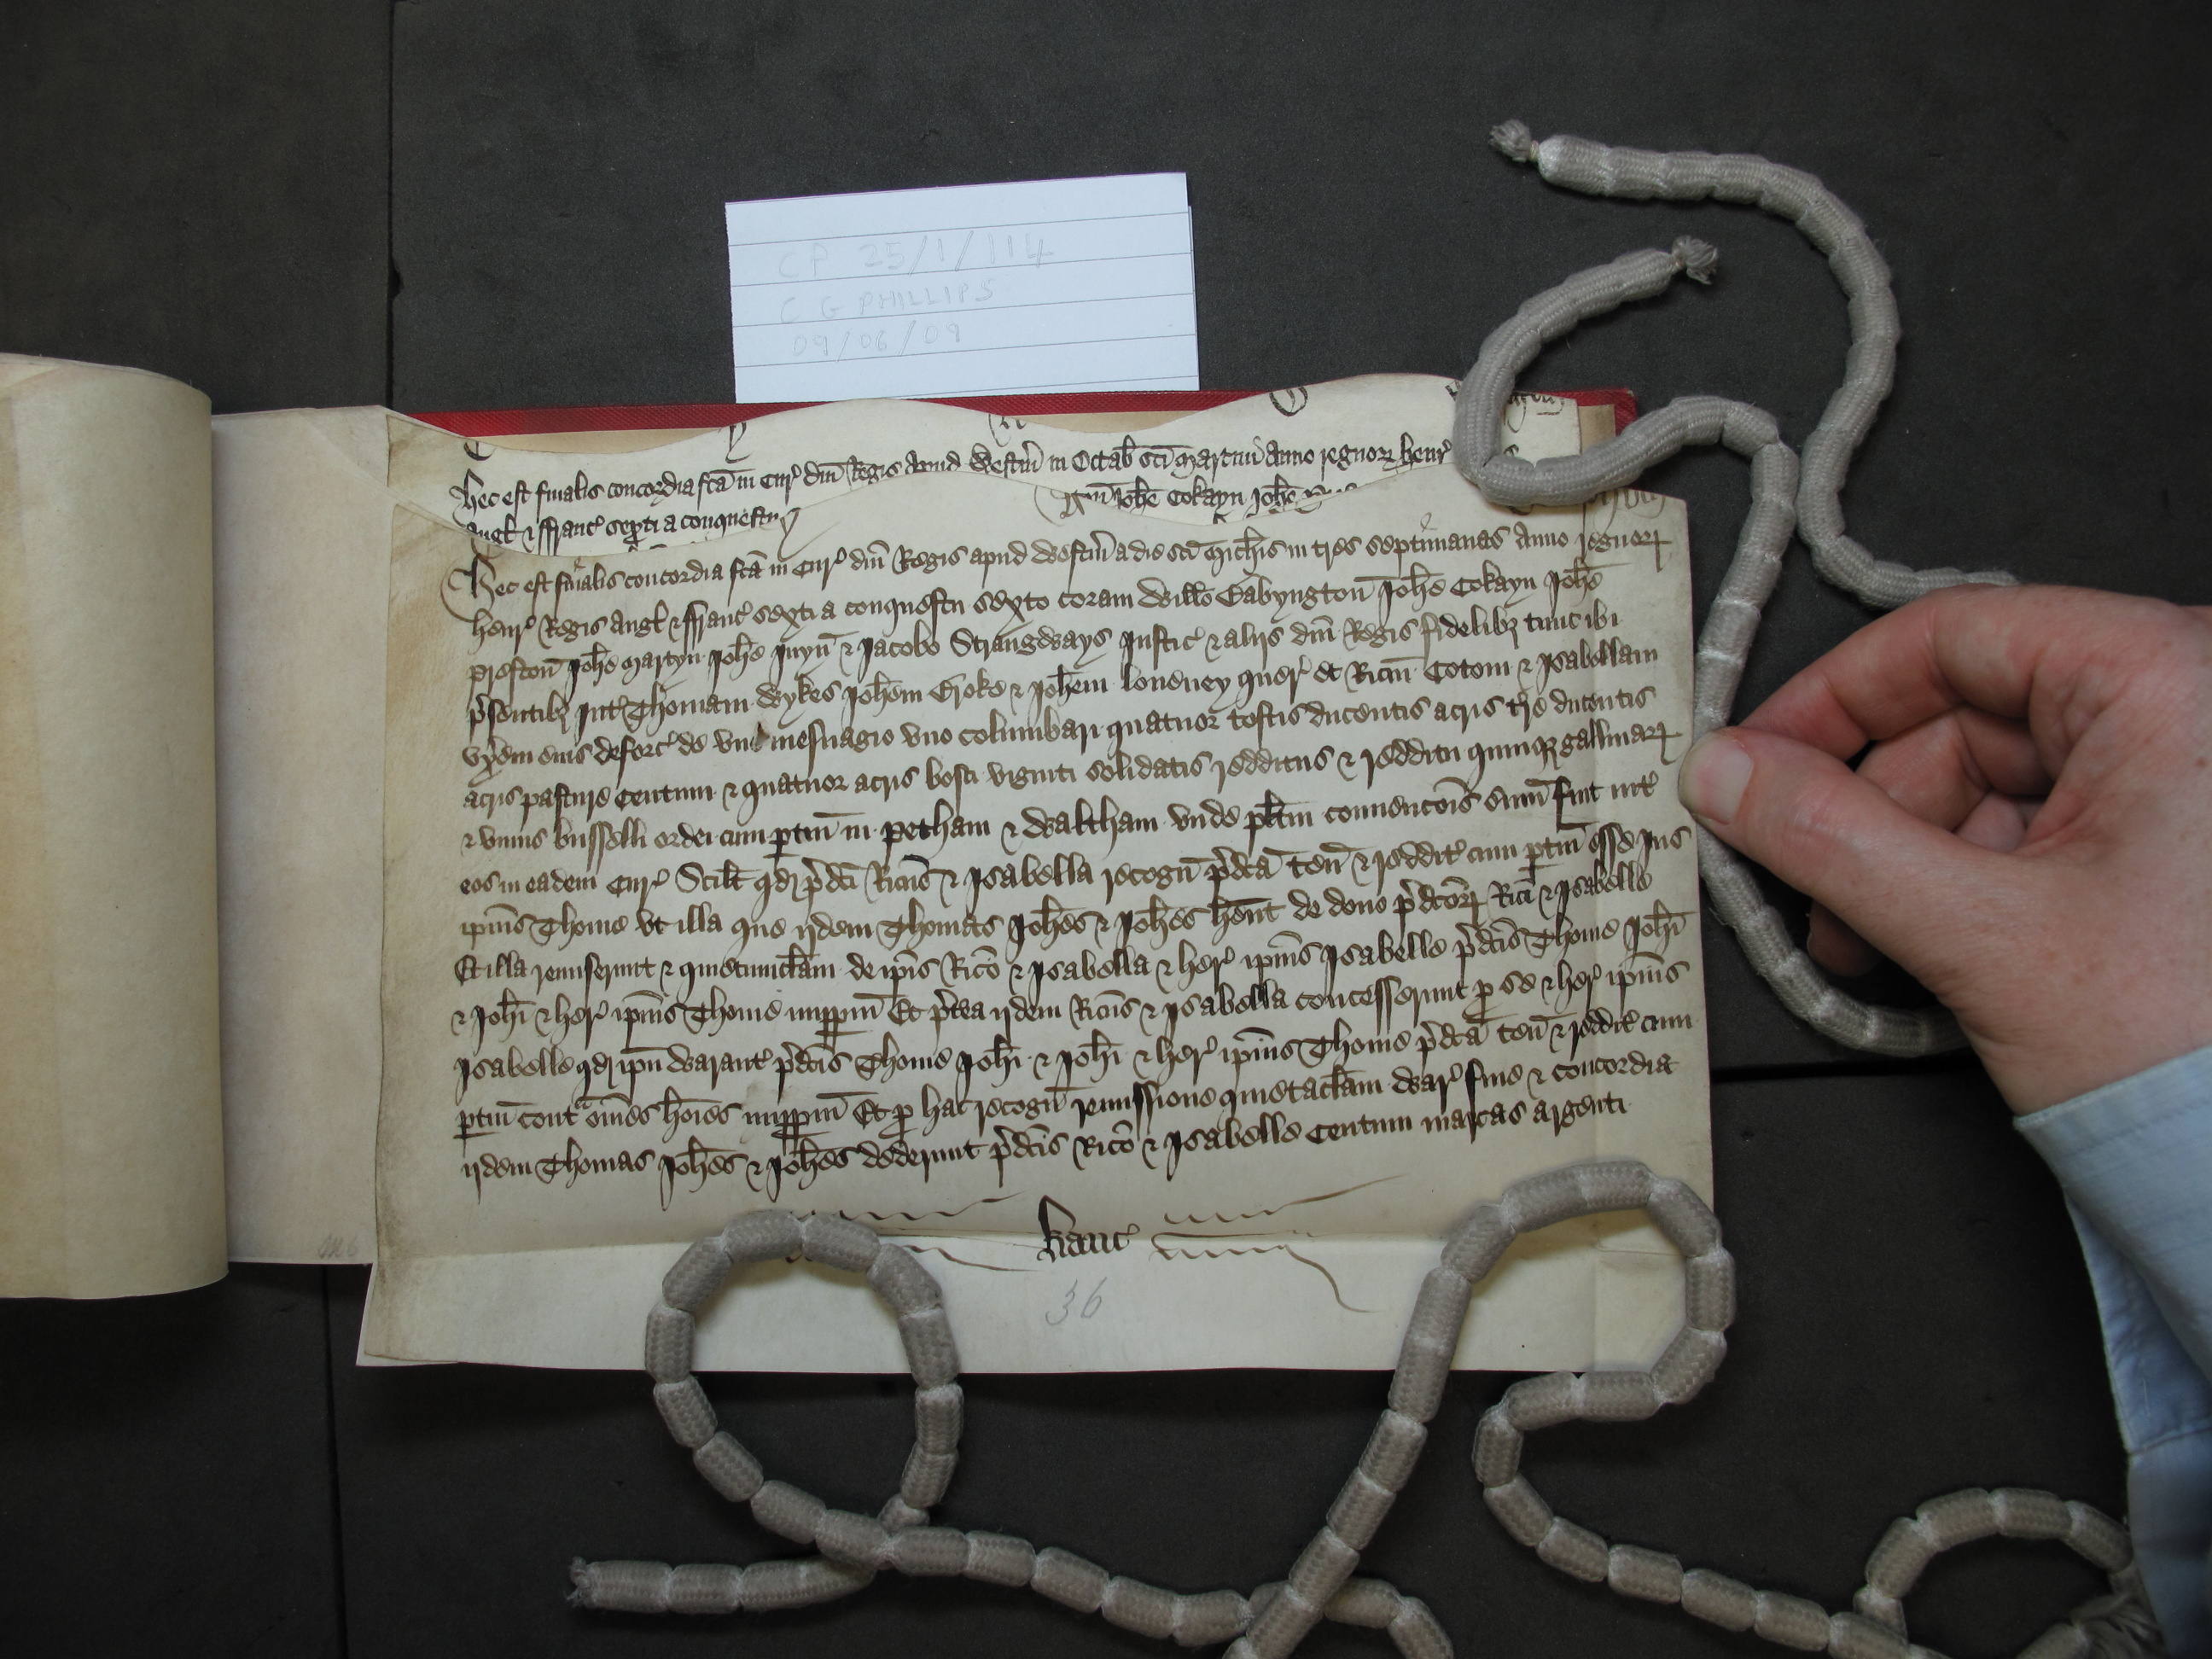 CP 25/1/114
C G PHILLIPS
09/06/09
Hec est finalis concordia fc̄a in Cur̉ dn̄i Regis apud Westm̄ in Octab̄ sc̄i Martini Anno regnoꝝ Henr̉
Angl̄ & Franc̉ sexti a conquestu
Joh̄e Cokayn Joh̄e
Hec est finalis concordia fc̄a in Cur̉ dn̄i Regis apud Westm̄ a die sc̄i Mich̄is in tres septimanas Anno regnoꝝ
Henr̉ Regis Angl̄ & Franc̉ sexti a conquestu sexto coram Will̄o Babyngton̄ Joh̄e Cokayn Joh̄e
Preston̄ Joh̄e Martyn Joh̄e Juyn̄ & Jacobo Strangways Justic̉ & alijs dn̄i Regis fidelibꝫ tunc ibi
p̉sentibꝫ Int̉ Thomam Wykes Joh̄em Croke & Joh̄em Loueney quer̉ et Ric̄m Cotom & Isabellam
vx̄em eius deforc̉ de vno mesuagio vno columbari quatuor toftis ducentis acris t̉re ducentis
acris pasture Centum & quatuor acris bosci viginti solidatis redditus & redditu quinqꝫ gallinaꝝ
& vnius busselli ordei cum ꝑtin̄ in Petham & Waltham vnde pl̄itm conuenc̄ois sum̄ fuit int̉
eos in eadem Cur̉ Scil̄t qd̄ p̉dc̄i Ric̄us & Isabella recogn̄ p̉dc̄a ten̄ & reddit̉ cum ꝑtin̄ esse Jus
ip̄ius Thome vt illa que ijdem Thomas Joh̄es & Joh̄es h̄ent de dono p̉dc̄oꝝ Ric̄i & Isabelle
Et illa remiserunt & quietumclam̄ de ip̄is Ric̄o & Isabella & her̉ ip̄ius Isabelle p̉dc̄is Thome Joh̄i
& Joh̄i & her̉ ip̄ius Thome imꝑꝑm̄ Et p̉terea ijdem Ric̄us & Isabella concesserunt ꝓ se & her̉ ip̄ius
Isabelle qd̄ ip̄i Warant̉ p̉dc̄is Thome Joh̄i & Joh̄i & her̉ ip̄ius Thome p̉dc̄a ten̄ & reddit̉ cum
ꝑtin̄ contᵃ om̄es hōies imꝑꝑm̄ Et ꝓ hac recogn̄ remissione quietaclam̄ War̉ fine & concordia
ijdem Thomas Joh̄es & Joh̄es dederunt p̉dc̄is Ric̄o & Isabelle Centum marcas argenti
Kanc̉
36